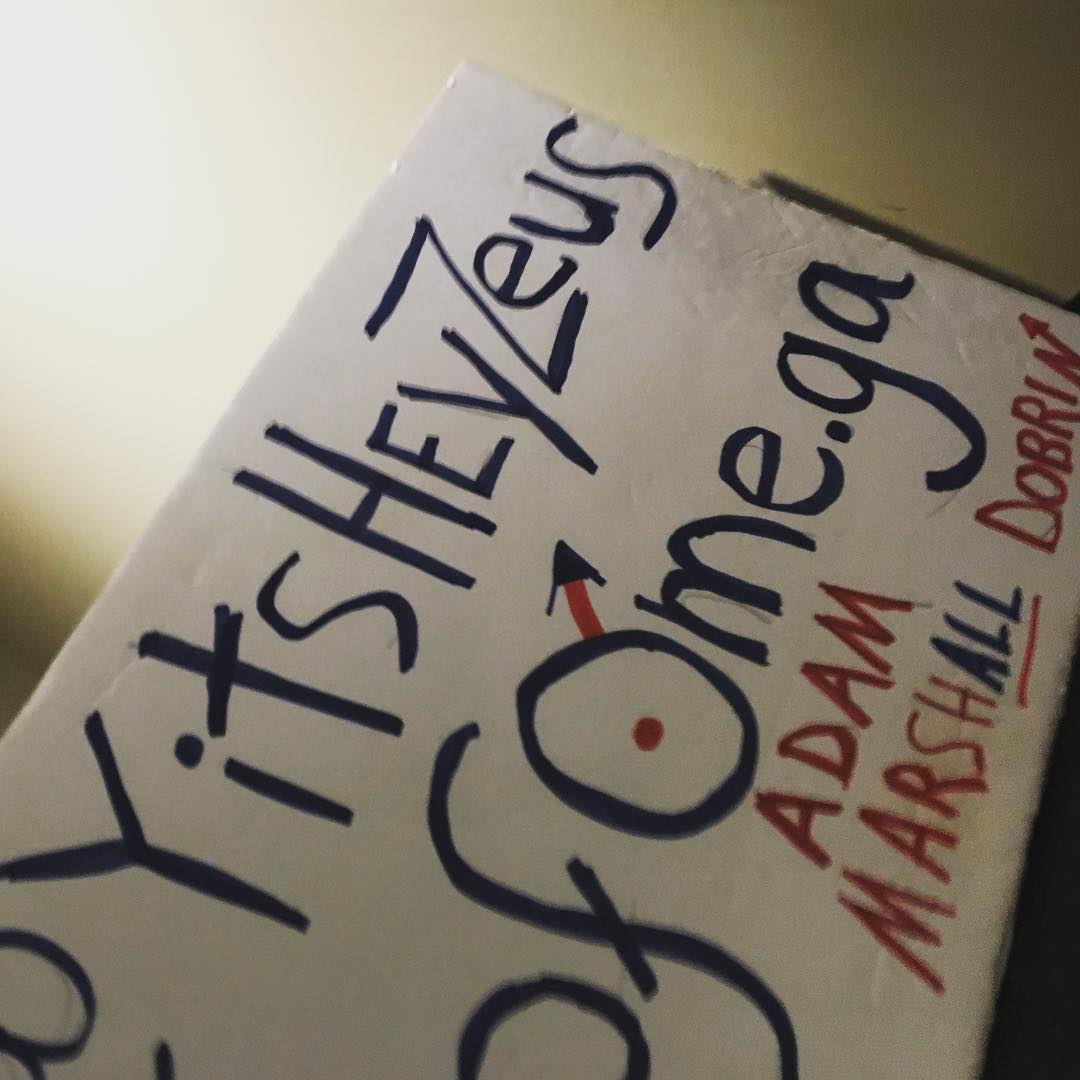 YitSHEYZeus
of Ome.ga
ADAM
MARSHALL
DOBRIN